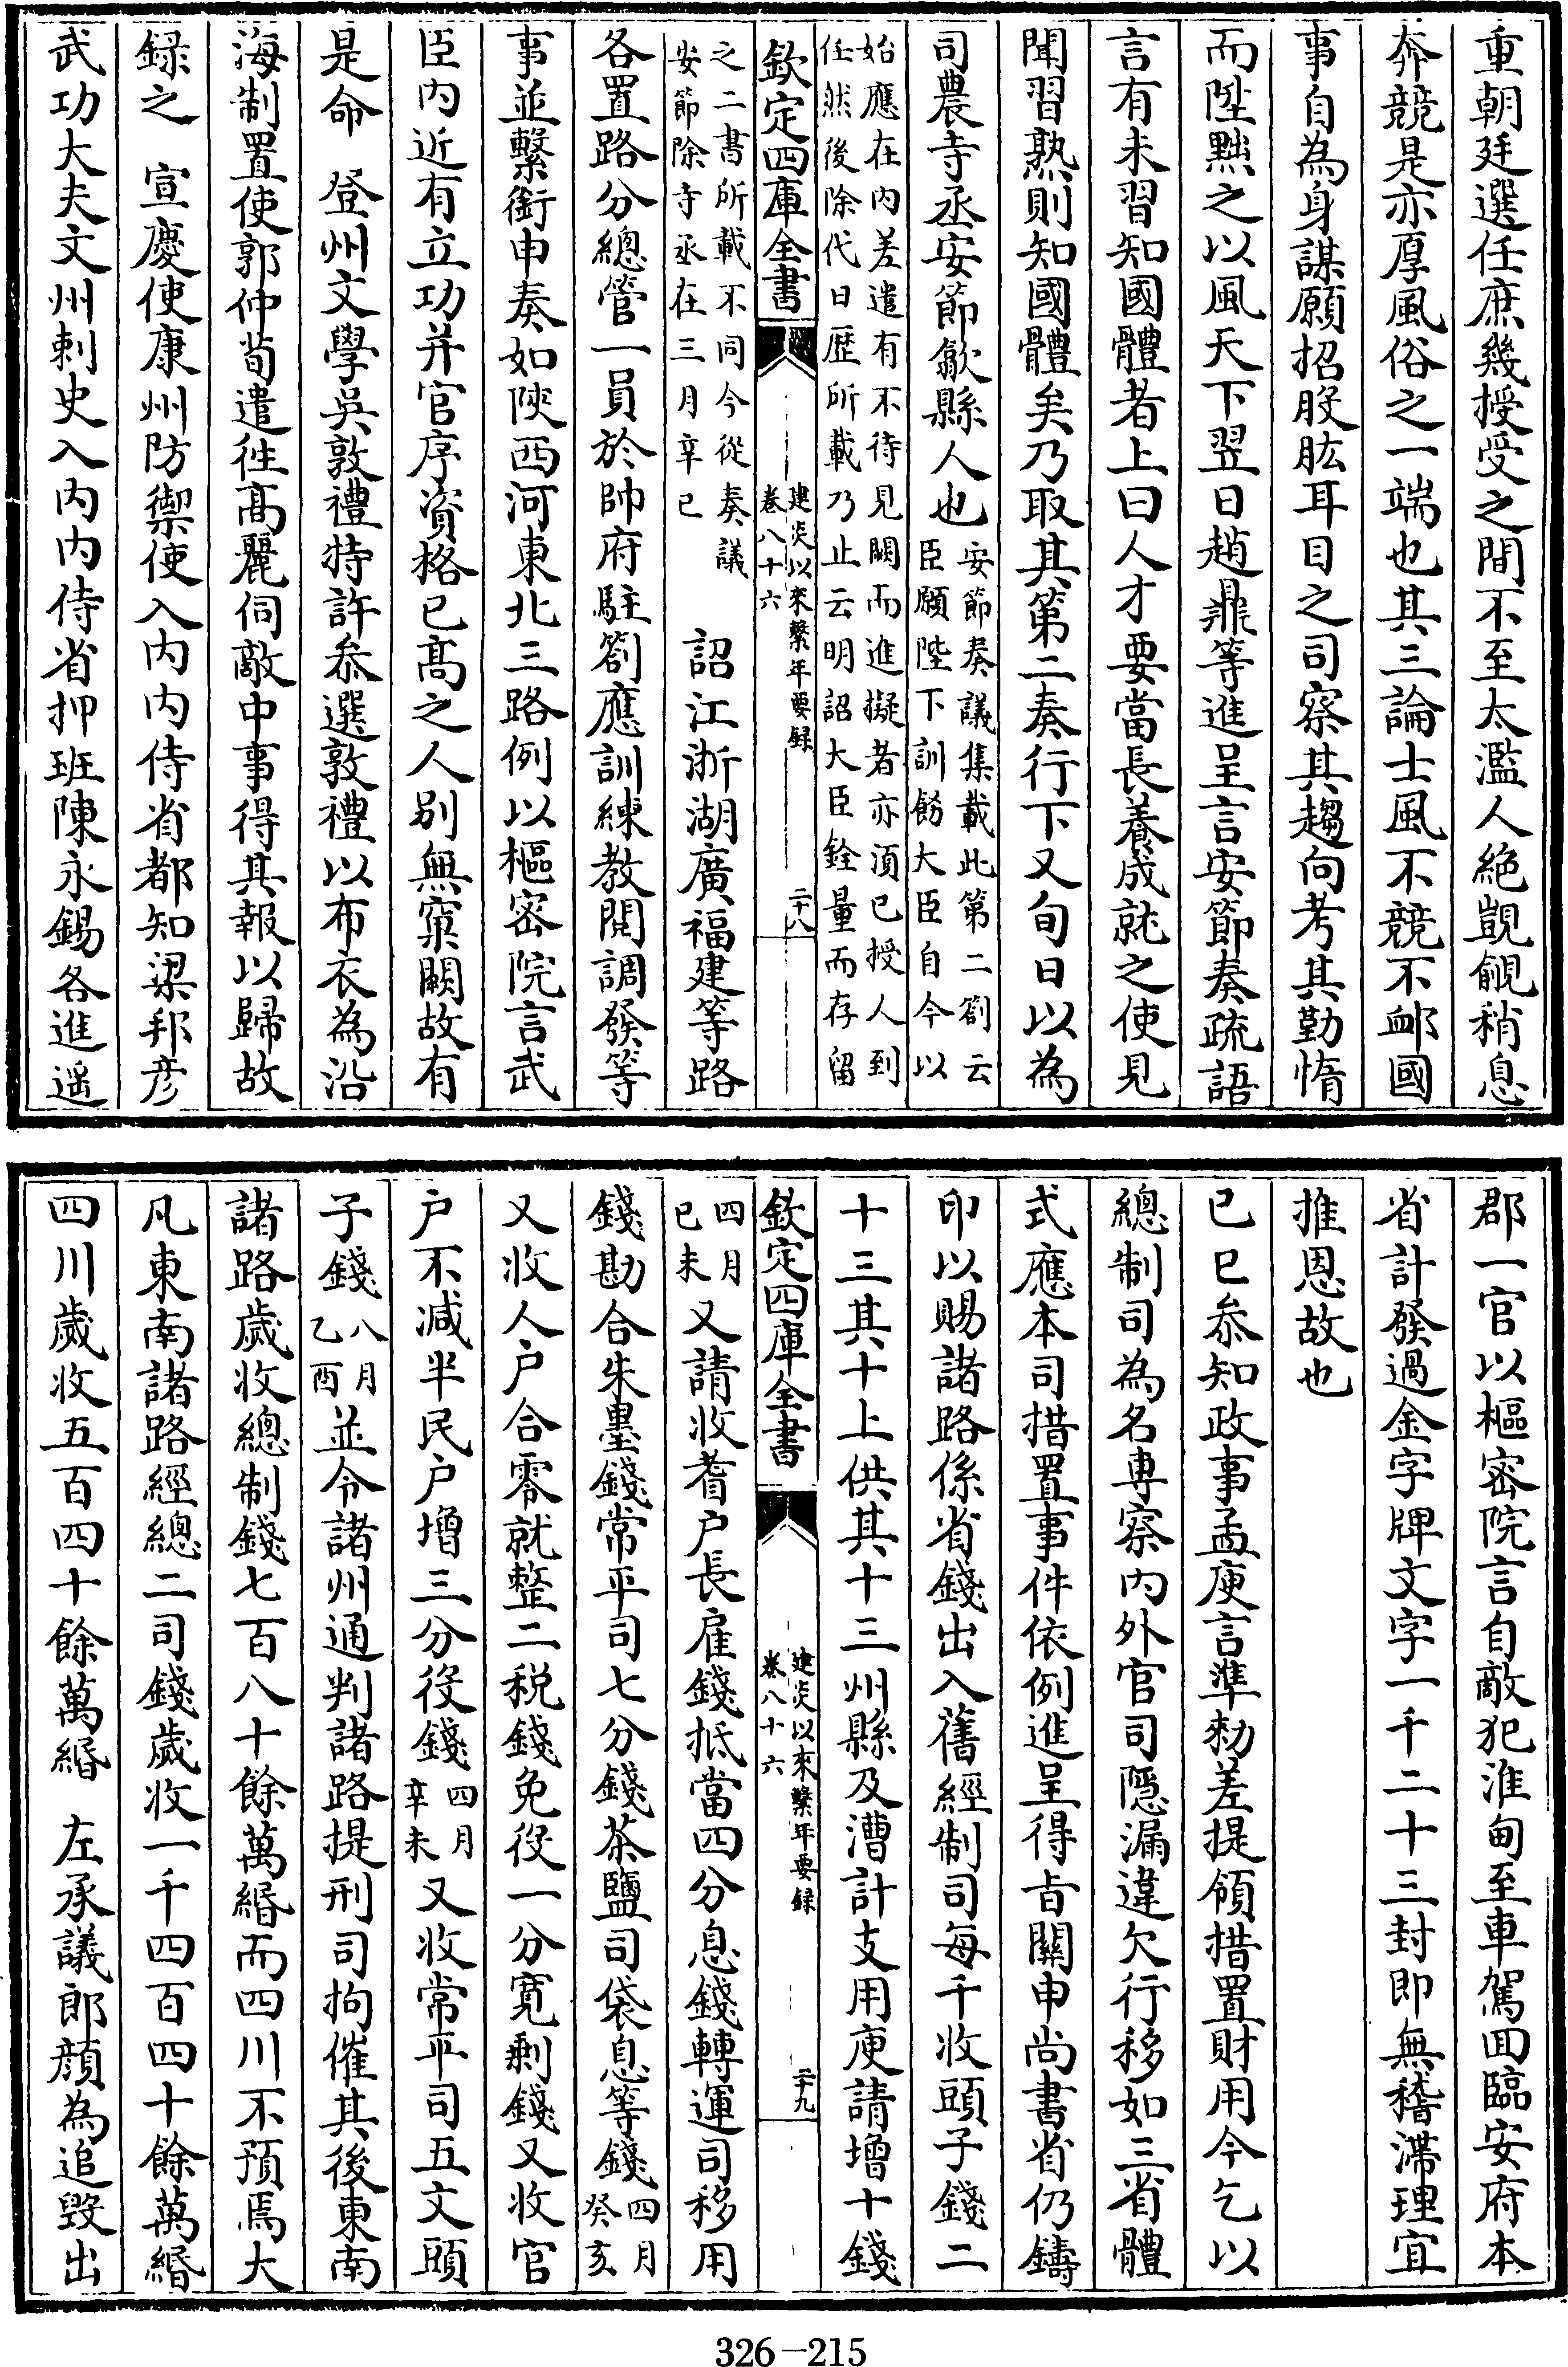 重朝廷選任庶幾授受之間不至太濫人絶覬覦稍息
奔競是亦厚風俗之一端也其三論士風不競不卹國
事自為身謀願招股肱耳目之司察其趨向考其勤惰
而陞黜之以風天下翌日趙鼎等進呈言安節奏疏語
言有未習知國體者上曰人才要當長養成就之使見
聞習熟則知國體矣乃取其第二奏行下又旬日以為
司農寺丞安節歙縣人也安節奏議集載此第二劄云
臣願陛下訓飭大臣自今以
始應在内差遣有不待見闕而進擬者亦湏已授人到
任然後除代日歴所載乃止云明詔大臣銓量而存留
欽定四庫全書
建炎以來繫年要録
卷八十六
二十八
之二書所載不同今從奏議
安節除寺丞在三月辛巳
詔江浙湖廣福建等路
各置路分總管一員於帥府駐劄應訓練教閱調發等
事並繫銜申奏如陜西河東北三路例以樞密院言武
臣内近有立功并官序資格已髙之人别無窠闕故有
是命　登州文學吳敦禮特許叅選敦禮以布衣為沿
海制置使郭仲荀遣徃髙麗伺敵中事得其報以歸故
録之　宣慶使康州防禦使入内内侍省都知梁邦彦
武功大夫文州刺史入内内侍省押班陳永錫各進遥
郡一官以樞密院言自敵犯淮甸至車駕囬臨安府本
省計發過金字牌文字一千二十三封即無稽滯理宜
推恩故也
己巳叅知政事孟庾言準勑差提領措置財用今乞以
總制司為名專察内外官司隠漏違欠行移如三省體
式應本司措置事件依例進呈得㫖關申尚書省仍鑄
印以賜諸路係省錢出入舊經制司每千收頭子錢二
十三其十上供其十三州縣及漕計支用庾請增十錢
欽定四庫全書
建炎以來繫年要録
卷八十六
二十九
四月
己未
又請收耆户長雇錢抵當四分息錢轉運司移用
錢勘合朱墨錢常平司七分錢茶鹽司袋息等錢四月
癸亥
又收人户合零就整二税錢免役一分寛剰錢又收官
户不减半民户增三分役錢四月
辛未
又收常平司五文頭
子錢八月
乙酉
並令諸州通判諸路提刑司拘催其後東南
諸路歲收總制錢七百八十餘萬緡而四川不預焉大
凡東南諸路經總二司錢歲收一千四百四十餘萬緡
四川歲收五百四十餘萬緡　左承議郎顔為追毁出
326-215